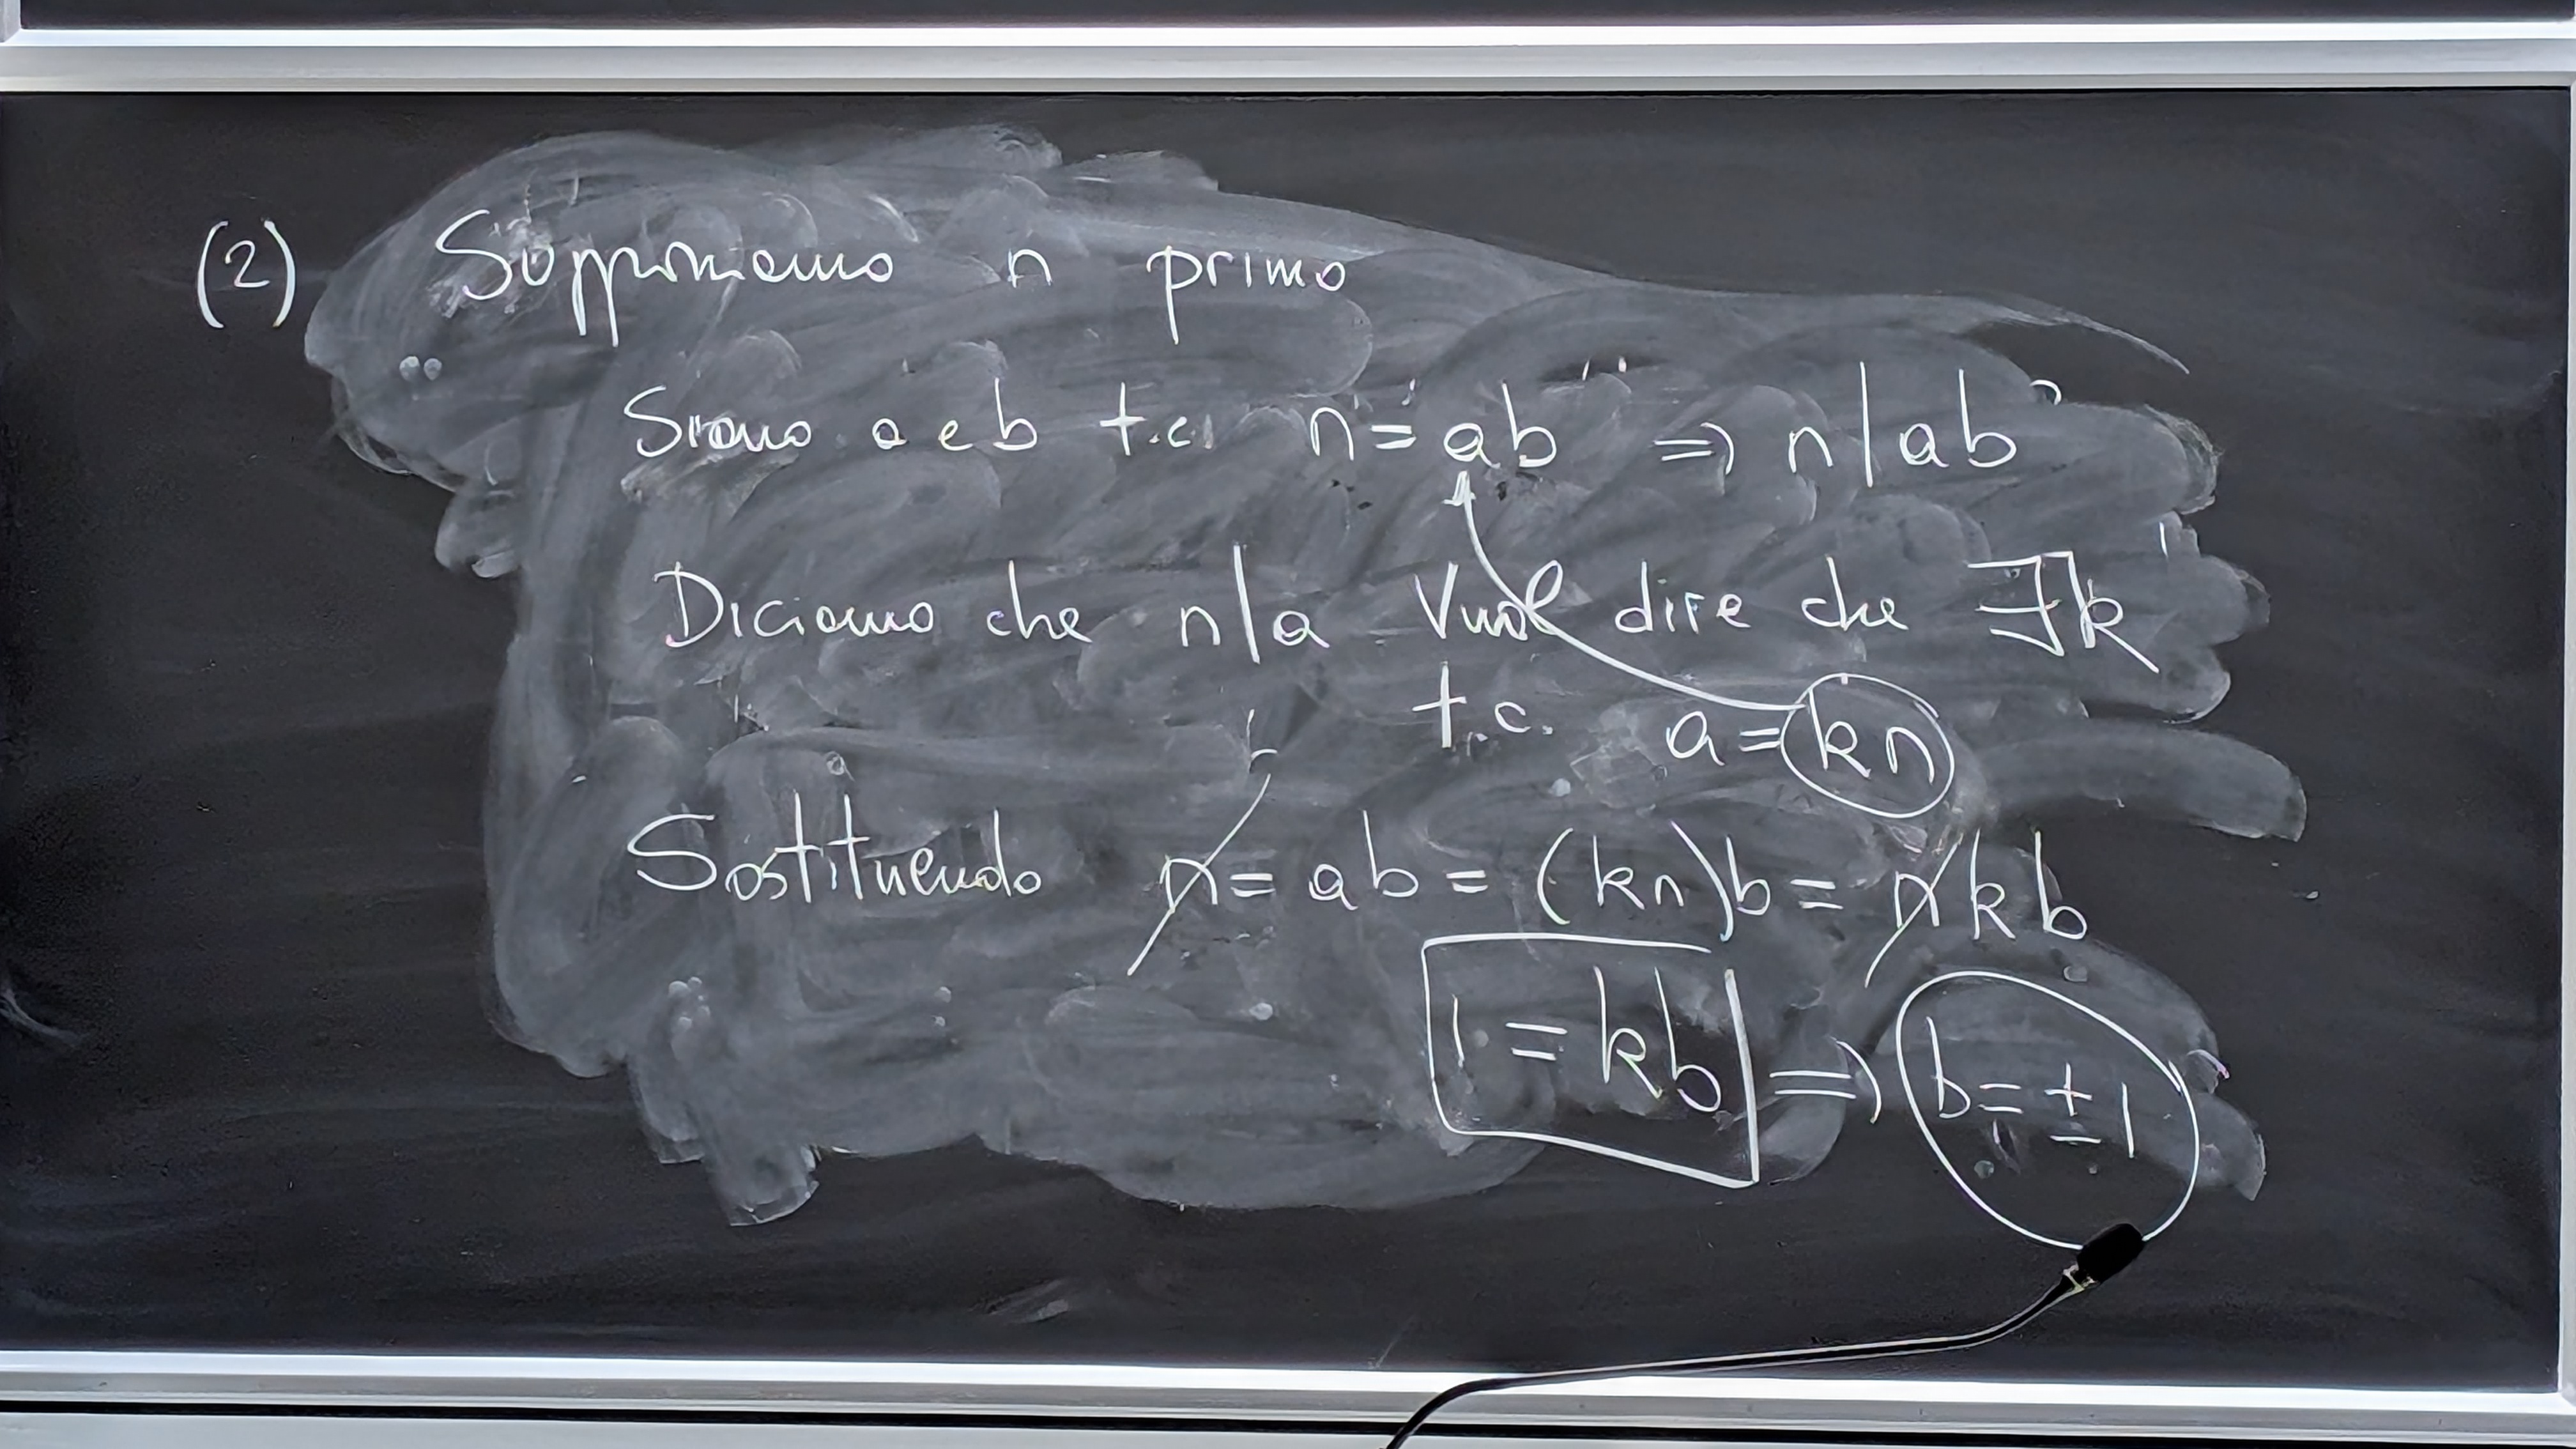 (2) Supponiamo n primo
Siano a e b t.c. n = ab ⇒ n | ab
Diciamo che n | a vuol dire che ∃k
t.c. a = kn
Sostituendo n = ab = (kn)b = nkb
1 = kb ⇒ b = ±1